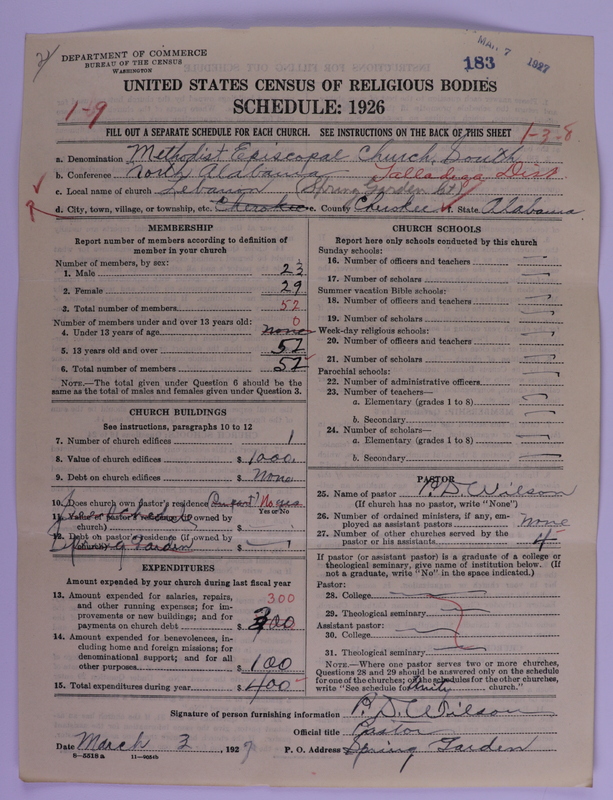 DEPARTMENT OF COMMERCE
BUREAU OF THE CENSUS
WASHINGTON
183
MAR 7 1927
UNITED STATES CENSUS OF RELIGIOUS BODIES
SCHEDULE: 1926
1-9
FILL OUT A SEPARATE SCHEDULE FOR EACH CHURCH. SEE INSTRUCTIONS ON THE BACK OF THIS SHEET
1-3-8
a. Denomination Methodist Episcopal Church, South
b. Conference North Alabama Talladega Dist
c. Local name of church Lebanon (Spring Garden Ct)
d. City, town, village, or township, etc. Cherokee e. County Cherokee f. State Alabama
MEMBERSHIP
Report number of members according to definition of
member in your church
Number of members, by sex:
1. Male 23
2. Female 29
3. Total number of members 52
Number of members under and over 13 years old: 0
4. Under 13 years of age none
5. 13 years old and over 52
6. Total number of members 52
NOTE.—The total given under Question 6 should be
the same as the total of males and females given under Question 3.
CHURCH BUILDINGS
See instructions, paragraphs 10 to 12
7. Number of church edifices 1
8. Value of church edifices $ 1000.
9. Debt on church edifices $ None
10. Does church own pastor's residence? No
Yes or No
11. Value of pastor's residence (if owned by
church) $
12. Debt on pastor's residence (if owned by
church) $
Spring Garden
EXPENDITURES
Amount expended by your church during last fiscal year
13. Amount expended for salaries, repairs,
and other running expenses; for im-
provements or new buildings; and for
payments on church debt $ 300
300
14. Amount expended for benevolences, in-
cluding home and foreign missions; for
denominational support; and for all
other purposes $ 100
15. Total expenditures during year $ 400
CHURCH SCHOOLS
Report here only schools conducted by this church
Sunday schools:
16. Number of officers and teachers
17. Number of scholars
Summer vacation Bible schools:
18. Number of officers and teachers
19. Number of scholars
Week-day religious schools:
20. Number of officers and teachers
21. Number of scholars
Parochial schools:
22. Number of administrative officers
23. Number of teachers—
a. Elementary (grades 1 to 8)
b. Secondary
24. Number of scholars—
a. Elementary (grades 1 to 8)
b. Secondary
PASTOR
25. Name of pastor P. D. Wilson
(If church has no pastor, write "None")
26. Number of ordained ministers, if any, em-
ployed as assistant pastors None
27. Number of other churches served by the
pastor or his assistants 4
If pastor (or assistant pastor) is a graduate of a college or
theological seminary, give name of institution below. (If
not a graduate, write "No" in the space indicated.)
Pastor:
28. College
29. Theological seminary
Assistant pastor:
30. College
31. Theological seminary
NOTE.—Where one pastor serves two or more churches,
Questions 28 and 29 should be answered only on the schedule
for one of the churches; on the schedules for the other churches,
write "See schedule for Unity church."
Signature of person furnishing information P. D. Wilson
Official title Pastor
Date March 3, 1927 P. O. Address Spring Garden
8—5518 a 11—9054b